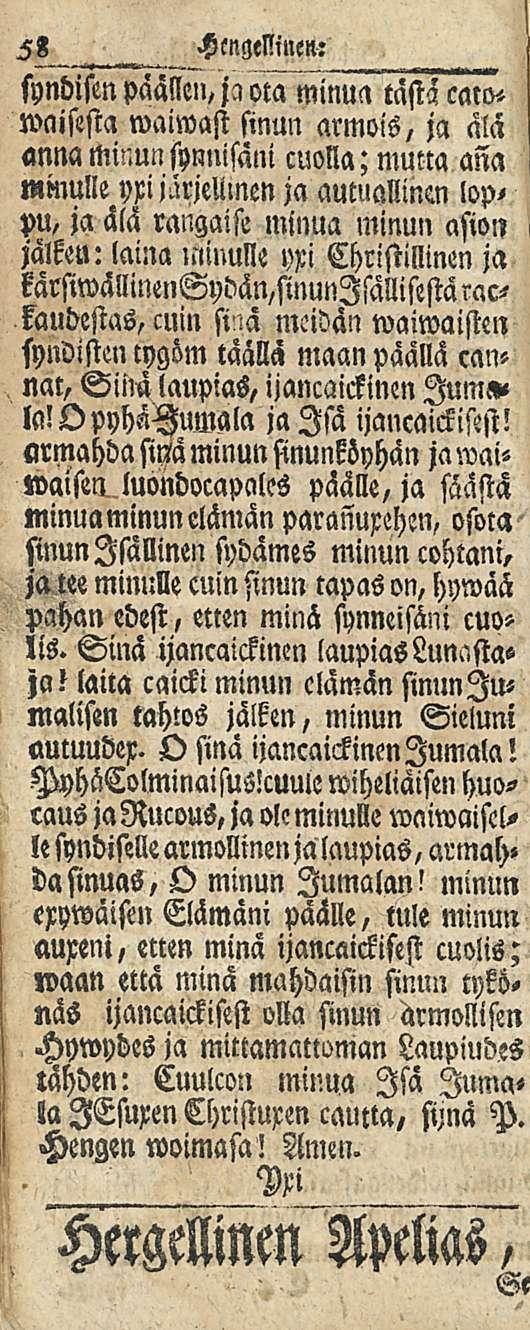 58 Hengellinen:
syndisen päällen, ja ota minua tästä cato-
waisesta waiwast sinun armois, ja älä
anna minun synnisäni cuolla; mutta aña
minulle yxi järjellinen ja autuallinen lop-
pu, ja älä rangaise minua minun asion
jälken: laina minulle yxi Christillinen ja
kärsiwällinen Sydän, sinun Isällisestä rac-
kaudestas, cuin sinä meidän waiwaisten
syndisten tygöm täällä maan päällä can-
nat, Sinä laupias, ijancaickinen Juma-
la! O pyhä Jumala ja Isä ijancaickisest!
armahda sinä minun sinunköyhän ja wai-
waisen luondocapales päälle, ja säästä
minua minun elämän parañuxehen, osota
sinun Isällinen sydämes minun cohtani,
ja tee minulle cuin sinun tapas on, hywää
pahan edest, etten minä synneisäni cuo-
lis. Sinä ijancaickinen laupias Lunasta-
ja! laita caicki minun elämän sinun Ju-
malisen tahtos jälken, minun Sieluni
autuudex. O sinä ijancaickinen Jumala!
Pyhä Colminaisus! cuule wiheliäisen huo-
caus ja Rucous, ja ole minulle waiwaisel-
le syndiselle armollinen ja laupias, armah-
da sinuas, O minun Jumalan! minun
exywäisen Elämäni päälle, tule minun
auxeni, etten minä ijancaickisest cuolis;
waan että minä mahdaisin sinun tykö-
näs ijancaickisest olla sinun armollisen
Hywydes ja mittamattoman Laupiudes
tähden: Cuulcon minua Isä Juma-
la JEsuxen Christuxen cautta, sijnä P.
Hengen woimasa! Amen.
Yxi
Hergellinen Apelias,
Se